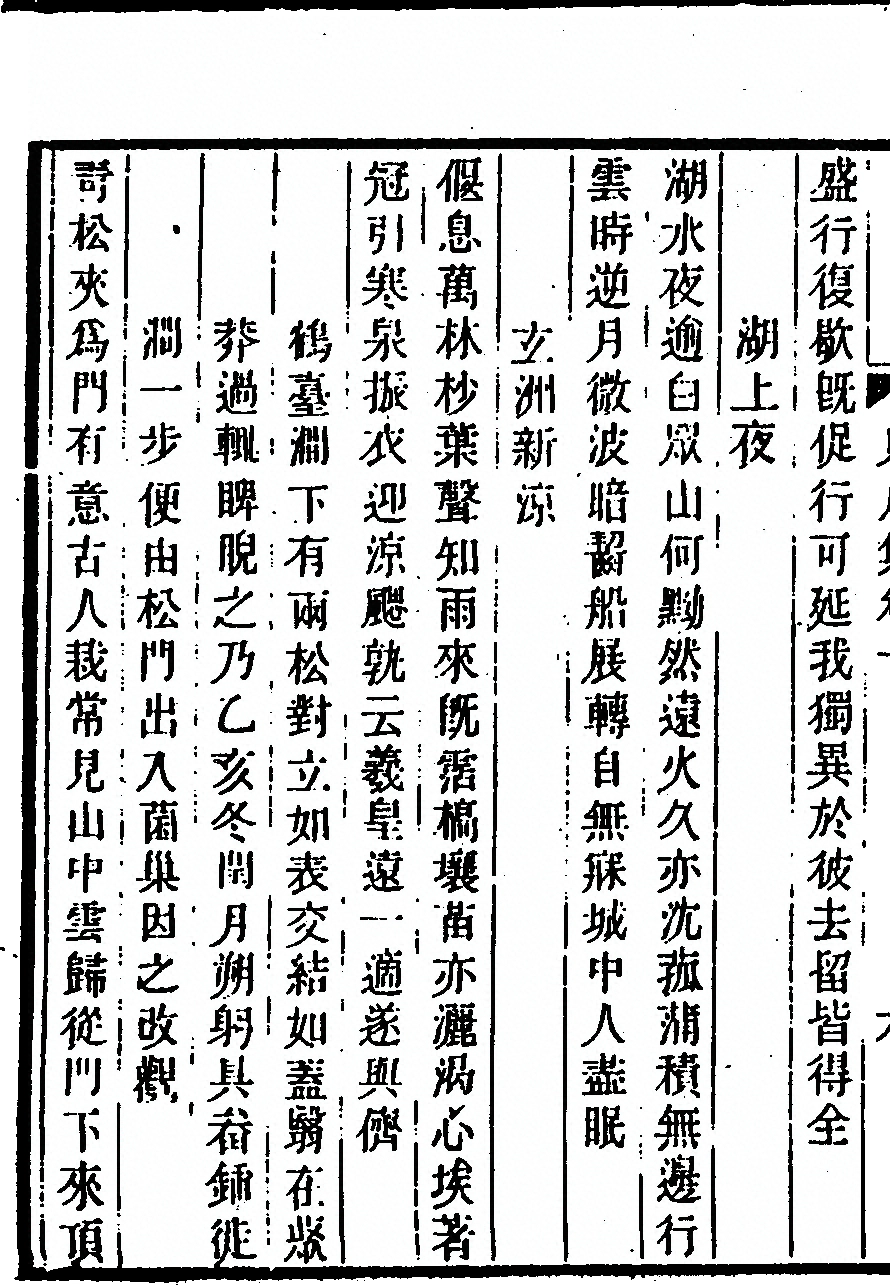 盛行復歇既促行可延我獨異於彼去留皆得全
湖上夜
湖水夜逾白眾山何黝然遠火久亦沈菰蒲積無邊行
雲時逆月微波暗齧船展轉自無寐城中人盡眠
玄洲新涼
偃息萬林杪葉聲知雨來既霑槁壤苗亦灑渦心埃著
冠引寒泉振衣迎涼颸孰云羲皇遠一適遂與儕
鶴臺澗下有兩松對立如表交結如蓋翳在叢
莽過輒睥睨之乃乙亥冬閏月朔躬具畚鍤徙
澗一步便由松門出入菌巢因之改觀
奇松夾爲門有意古人栽常見山中雲歸從門下來頂